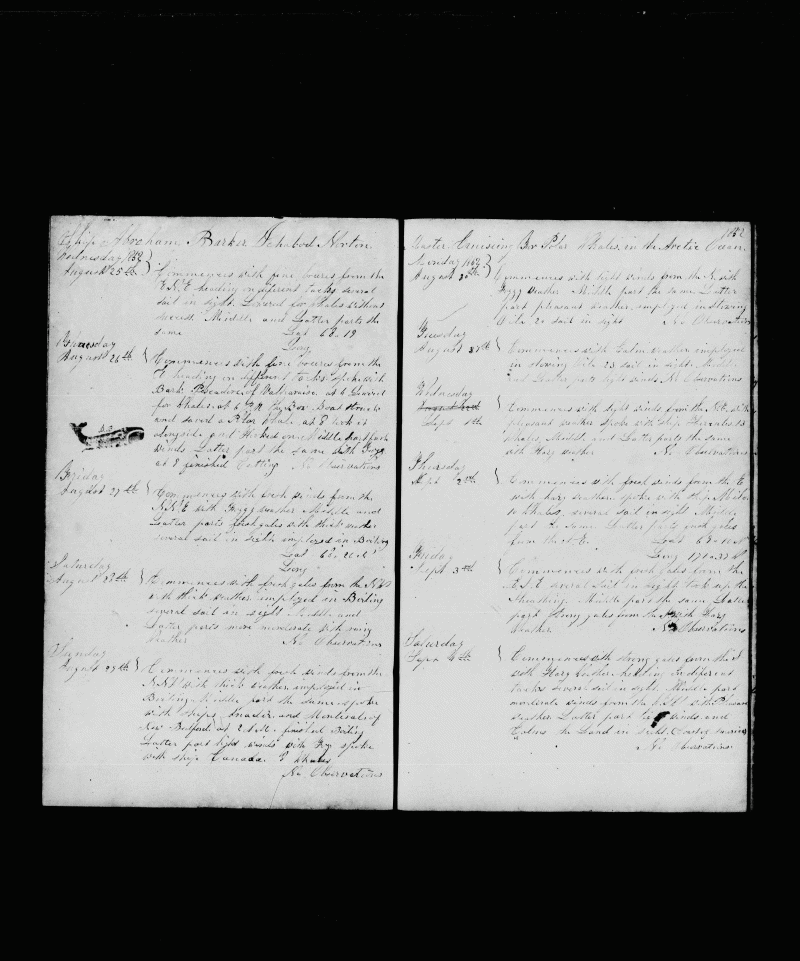 Ship Abraham Barker Ichabod Norton
Wednesday 1852
August 25th
Commences with fine breezes from the
E.N.E heading on different tacks several
sail in sight. Lowered for Whales without
success. Middle and Latter parts the
same Lat 68.19
Long
August 26th
Commences with fine breezes from the
heading on different tacks spoke with
Bark of at 6 lowered
for Whales. at 6 Boat struck
and saved a Polar Whale. at 8 took it
alongside and Middle part fresh
winds Latter part the same with Foggy
at 8 finished Cutting No Observations
Friday
August 27th
Commences with fresh winds from the
N.N.E with Foggy weather Middle and
Latter parts fresh gales with thick weather
several sail in sight employed in Boiling
Lat
Long
Saturday
August 28th
Commences with fresh gales from the
with thick weather employed in Boiling
several sail in sight Middle and
Latter parts more moderate with rainy
weather No Observations
Sunday
August 29th
Commences with fresh winds from the
with thick weather employed in
Boiling Middle part the same spoke
with Ships and Montreal of
New Bedford at finished Boiling
Latter part light winds with Fog spoke
with ship Canada. 8 Whales
No Observations
Master Cruising For Polar Whales, in the Arctic Ocean.
1852
Monday 1852
August 30th
Commences with light winds from the N. with
Foggy weather Middle part the same Latter
part pleasant weather employed in stowing
Oil 20 sail in sight No Observation
Tuesday
August 31st
Commences with Calm weather employed
in stowing Oil 23 sail in sight. Middle
and Latter parts light winds No Observations
Wednesday
Sept 1st
Commences with light winds from the N.E. with
pleasant weather Spoke with ship Hercules 13
Whales, Middle and Latter parts the same
with Hazy weather No Observations
Thursday
Sept 2nd
Commences with fresh winds from the E
with hazy weather spoke with the ship
10 Whales, several sail in sight Middle
part the same Latter part fresh gales
from the N.E.
Long
Friday
Sept 3rd
Commences with fresh gales from the
E.N.E several sail in sight, took up the
Middle part the same Latter
part strong gales from the with Hazy
weather No Observations
Saturday
Sept 4th
Commences with strong gales from the
with Hazy weather heading on different
tacks several sail in sight. Middle part
moderate winds from the with Pleasant
weather Latter part light winds and
Calms the Land in sight.
No Observations